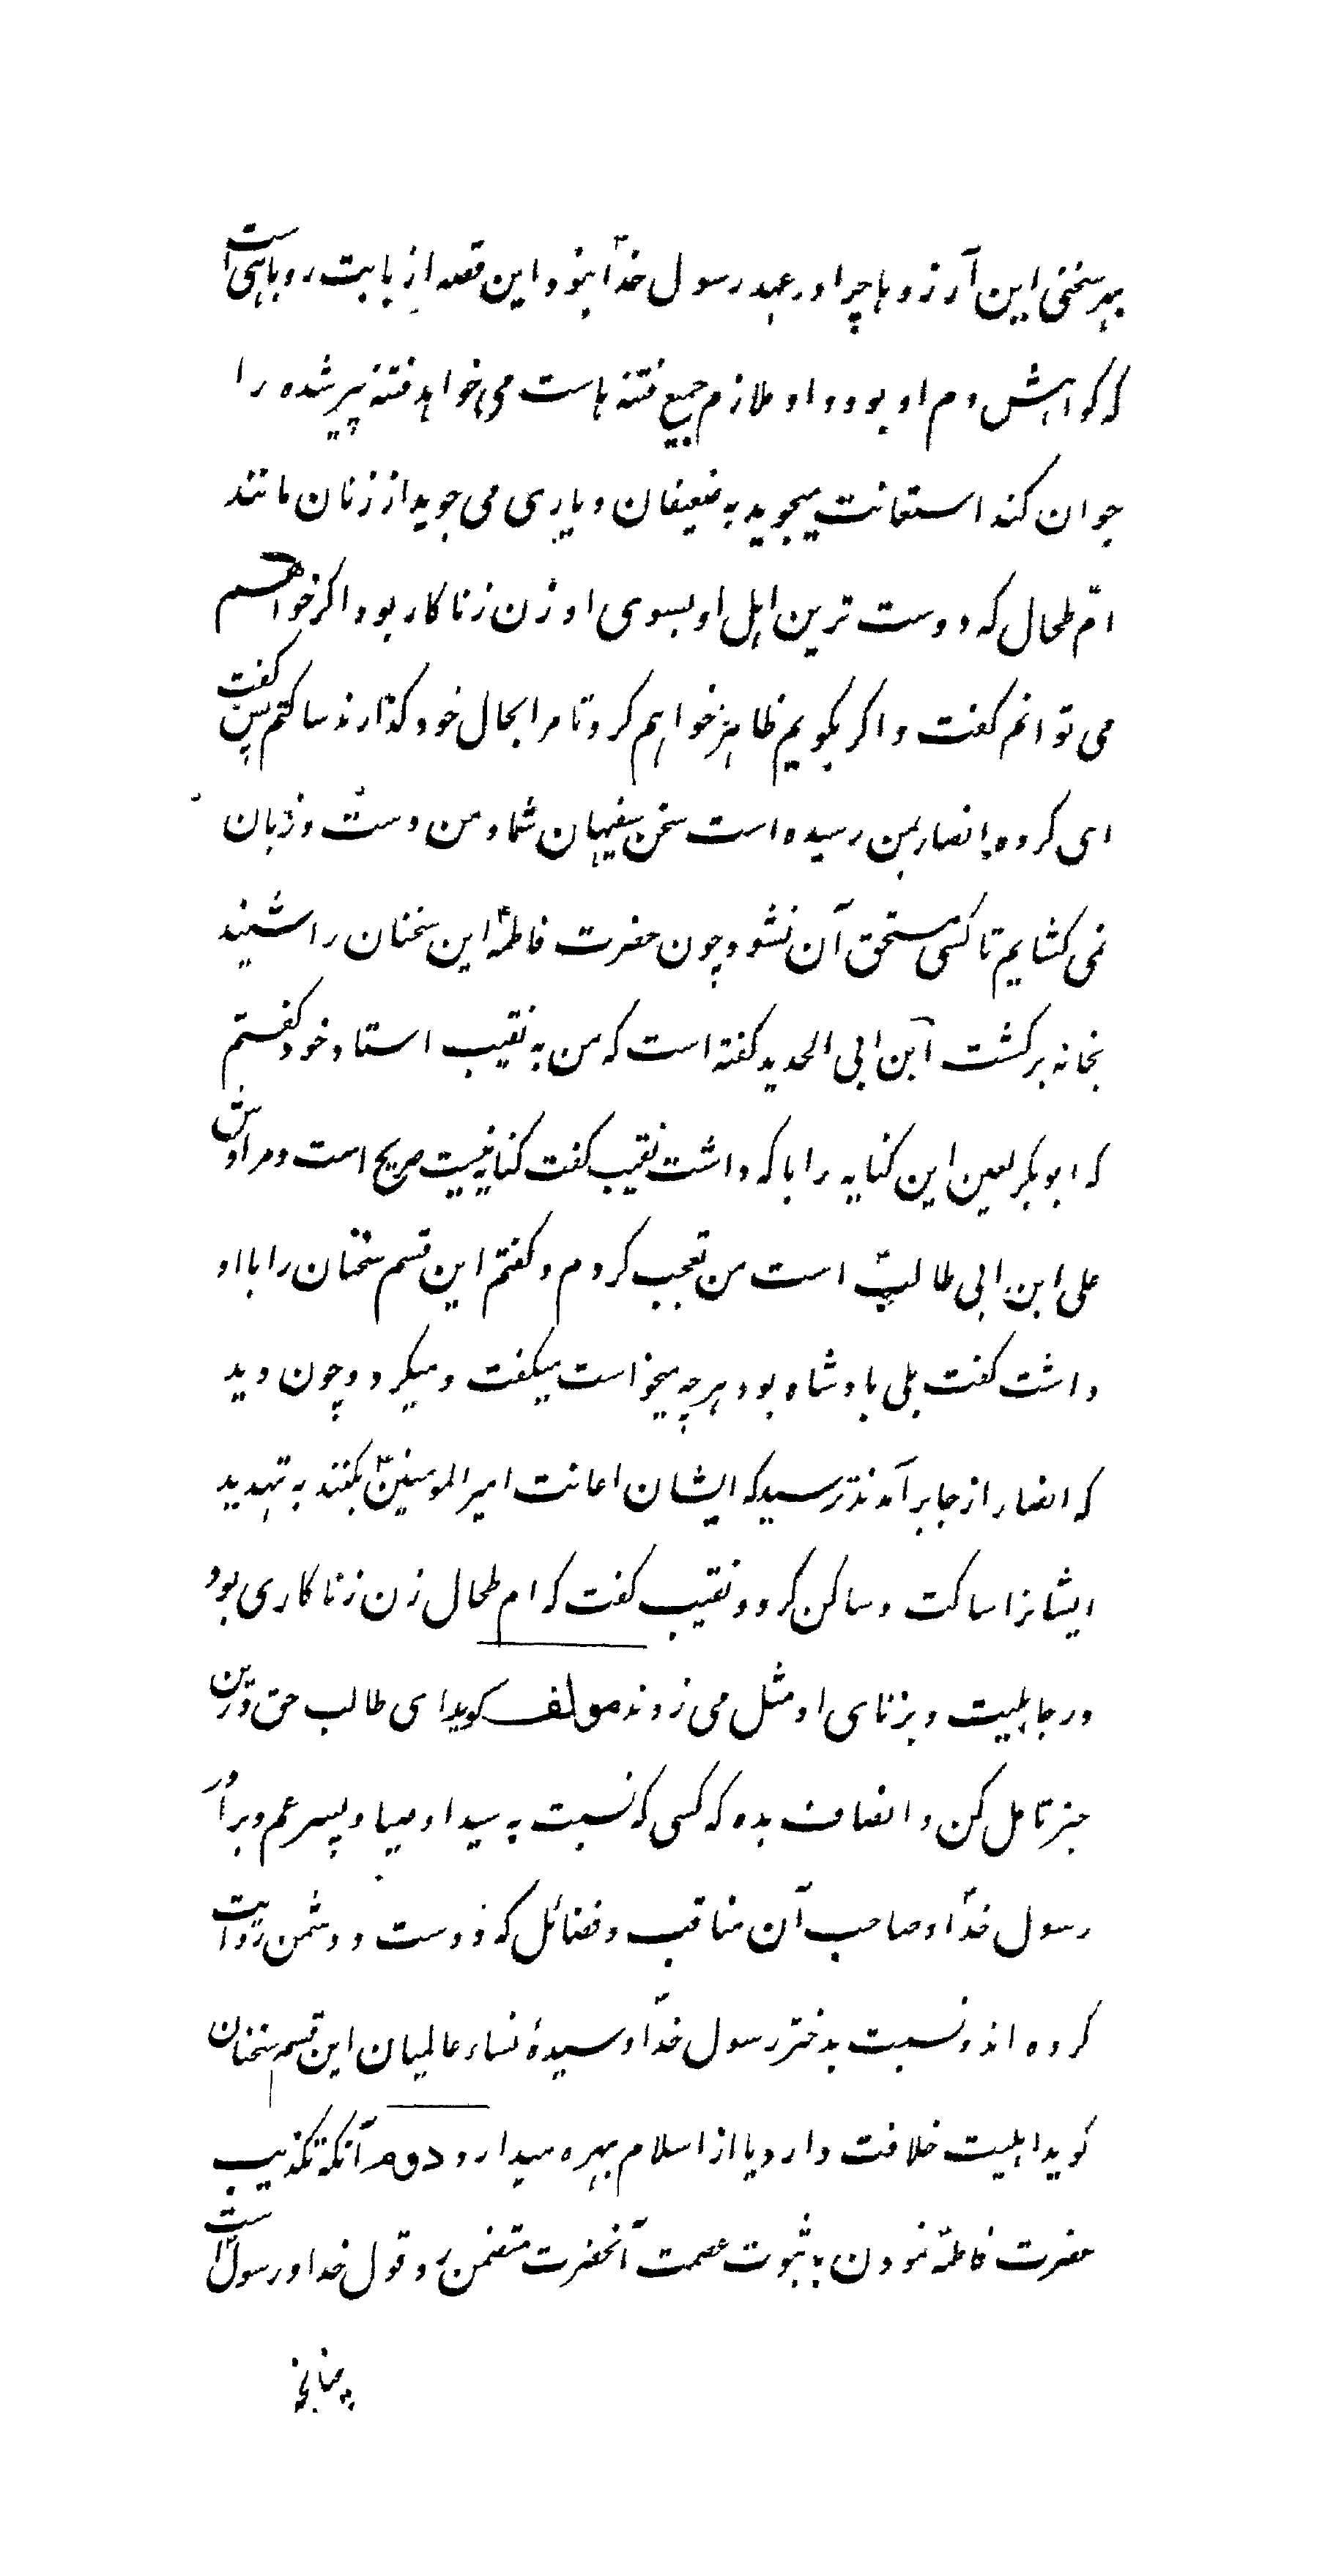 بهر سخنی این آرزوها چرا در عهد رسول خدا بنود این قصه از بابت روباهی است
که کواهش دم او بود و او ملازم جمیع فتنه هاست می خواهد فتنه پیر شده را
جوان کند استعانت میجوید به ضعیفان و یاری می جوید از زنان مانند
ام طحال که دوست ترین اهل او بسوی او زن زناکار بود اکر خواهم
می توانم کفت و اکر بکویم ظاهر خواهم کرد تا مرا بحال خود کذارند ساکتم پس کفت
ای کروه انصار بمن رسیده است سخن سفیهان شما و من دست و زبان
نمی کشایم تا کسی مستحق آن نشود چون حضرت فاطمهٔ این سخنان را شنید
بخانه برکشت ابن ابی الحدید کفته است که من به نقیب استاد خود کفتم
که ابوبکر لعین این کنایه را با که داشت نقیب کفت کنایه نیست صریح است و مرادش
علی ابن ابی طالب است من تعجب کردم و کفتم این قسم سخنان را با او
داشت کفت بلی بادشاه بود هر چه میخواست میکفت و میکرد و چون دید
که انصار از جا بر آمدند ترسید که ایشان اعانت امیر المومنین بکنند به تهدید
ایشانرا ساکت و ساکن کرد و نقیب کفت که ام طحال زن زناکاری بود
در جاهلیت و بزنای او مثل می زدند مولف کوید ای طالب حق درین
خبر تامل کن و انصاف بده که کسی که نسبت به سید اوصیا و پسر عم و برادر
رسول خدا و صاحب آن مناقب و فضائل که دوست و دشمن روایت
کرده اند و نسبت بدختر رسول خدا و سیدهٔ نساء عالمیان این قسم سخنان
کوید اهلیت خلافت دارد یا از اسلام بهره میدارد دوم آنکه تکذیب
حضرت فاطمهٔ نمودن با ثبوت عصمت آنحضرت متضمن رد قول خدا و رسول است
چنانچه